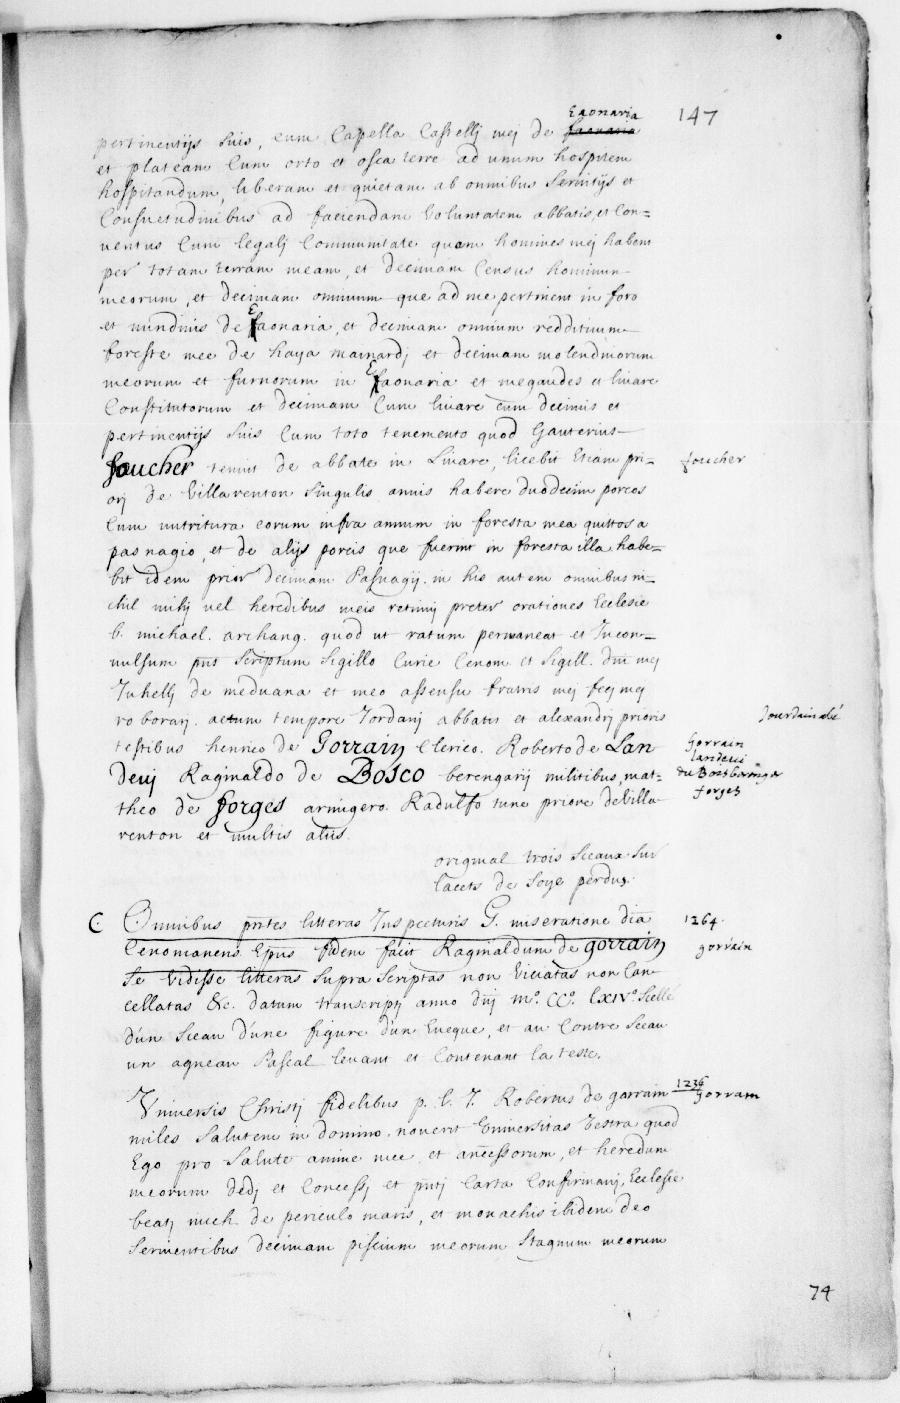 147
Eaonaria
pertinentijs suis, cum Capella Castellj mej de faonaria
et plateam Cum orto et osca terre ad unum hospitem
hospitandum, liberam et quietam ab omnibus servitijs et
Consuetudinibus ad faciendam Voluntatem abbatis, et Con=
uentus Cum legalj Communitate quam homines mej habent
per totam terram meam, et Decimam Census hominum
meorum, et Decimam omnium que ad me pertinent in foro
et nundinis de Eaonaria, et decimam omnium reddituum
foreste mee de haya mainardj et decimam molendinorum
meorum et furnorum in Eaonaria et megaudes et livare
Constitutorum et Decimam Cum livare cum decimis et
pertinentijs suis Cum toto tenemento quod Gauterius
foucher tenuit de abbate in Livare, licebit Etiam pri=
orj de Villarenton Singulis annis habere duodecim porcos
Cum nutritura eorum infra annum in foresta mea quittos a
pasnagio, et de alijs porcis que fuerint in foresta illa habe=
bit idem prior decimam Pasnagij. in his autem omnibus ni=
chil mihj vel heredibus meis retinuj preter orationes Ecclesie
b. michael. archang. quod ut ratum permaneat et Incon=
uulsum pn̄s scriptum sigillo Curie Cenom et sigill. dn̄i mej
Juhellj de meduana et meo assensu fratris mej fecj mej
roborarj. actum tempore Jordanj abbatis et alexandrj prioris
testibus henrico de Gorrain Clerico. Roberto de Lan
Devij Raginaldo de Bosco berengarij militibus, mat=
theo de forges armigero. Radulfo tunc priore de Villa
renton et multis aliis.
foucher
Jourdain abé
Gorrain
landevi
du Bois beranger
forges
original trois sceaux sur
lacets de soye perdus.
C Omnibus pn̄tes litteras Inspecturis G. miseratione diā
Cenomanens Epūs fidem facit Raginaldum de gorrain
se vidisse litteras supra scriptas non Viciatas non Can
cellatas &c. datum transcriptj anno dn̄j m°. CC°. LXIV°. scellé
d'un sceau d'une figure d'un Eveque, et au Contre sceau
un agneau Pascal levant et Contenant la teste.
1264.
gorrain
Vniversis Christj fidelibus p. l. J. Robertus de gorrain
miles Salutem in domino. noverit Vniversitas Vestra quod
Ego pro Salute anime mee et anc̄essorum, et heredum
meorum dedj et Concessj et pn̄tj Carta Confirmavj, Ecclesie
beatj mich. de periculo maris, et monachis ibidem deo
Servientibus decimam piscium meorum stagnum meorum
1236
gorram
74